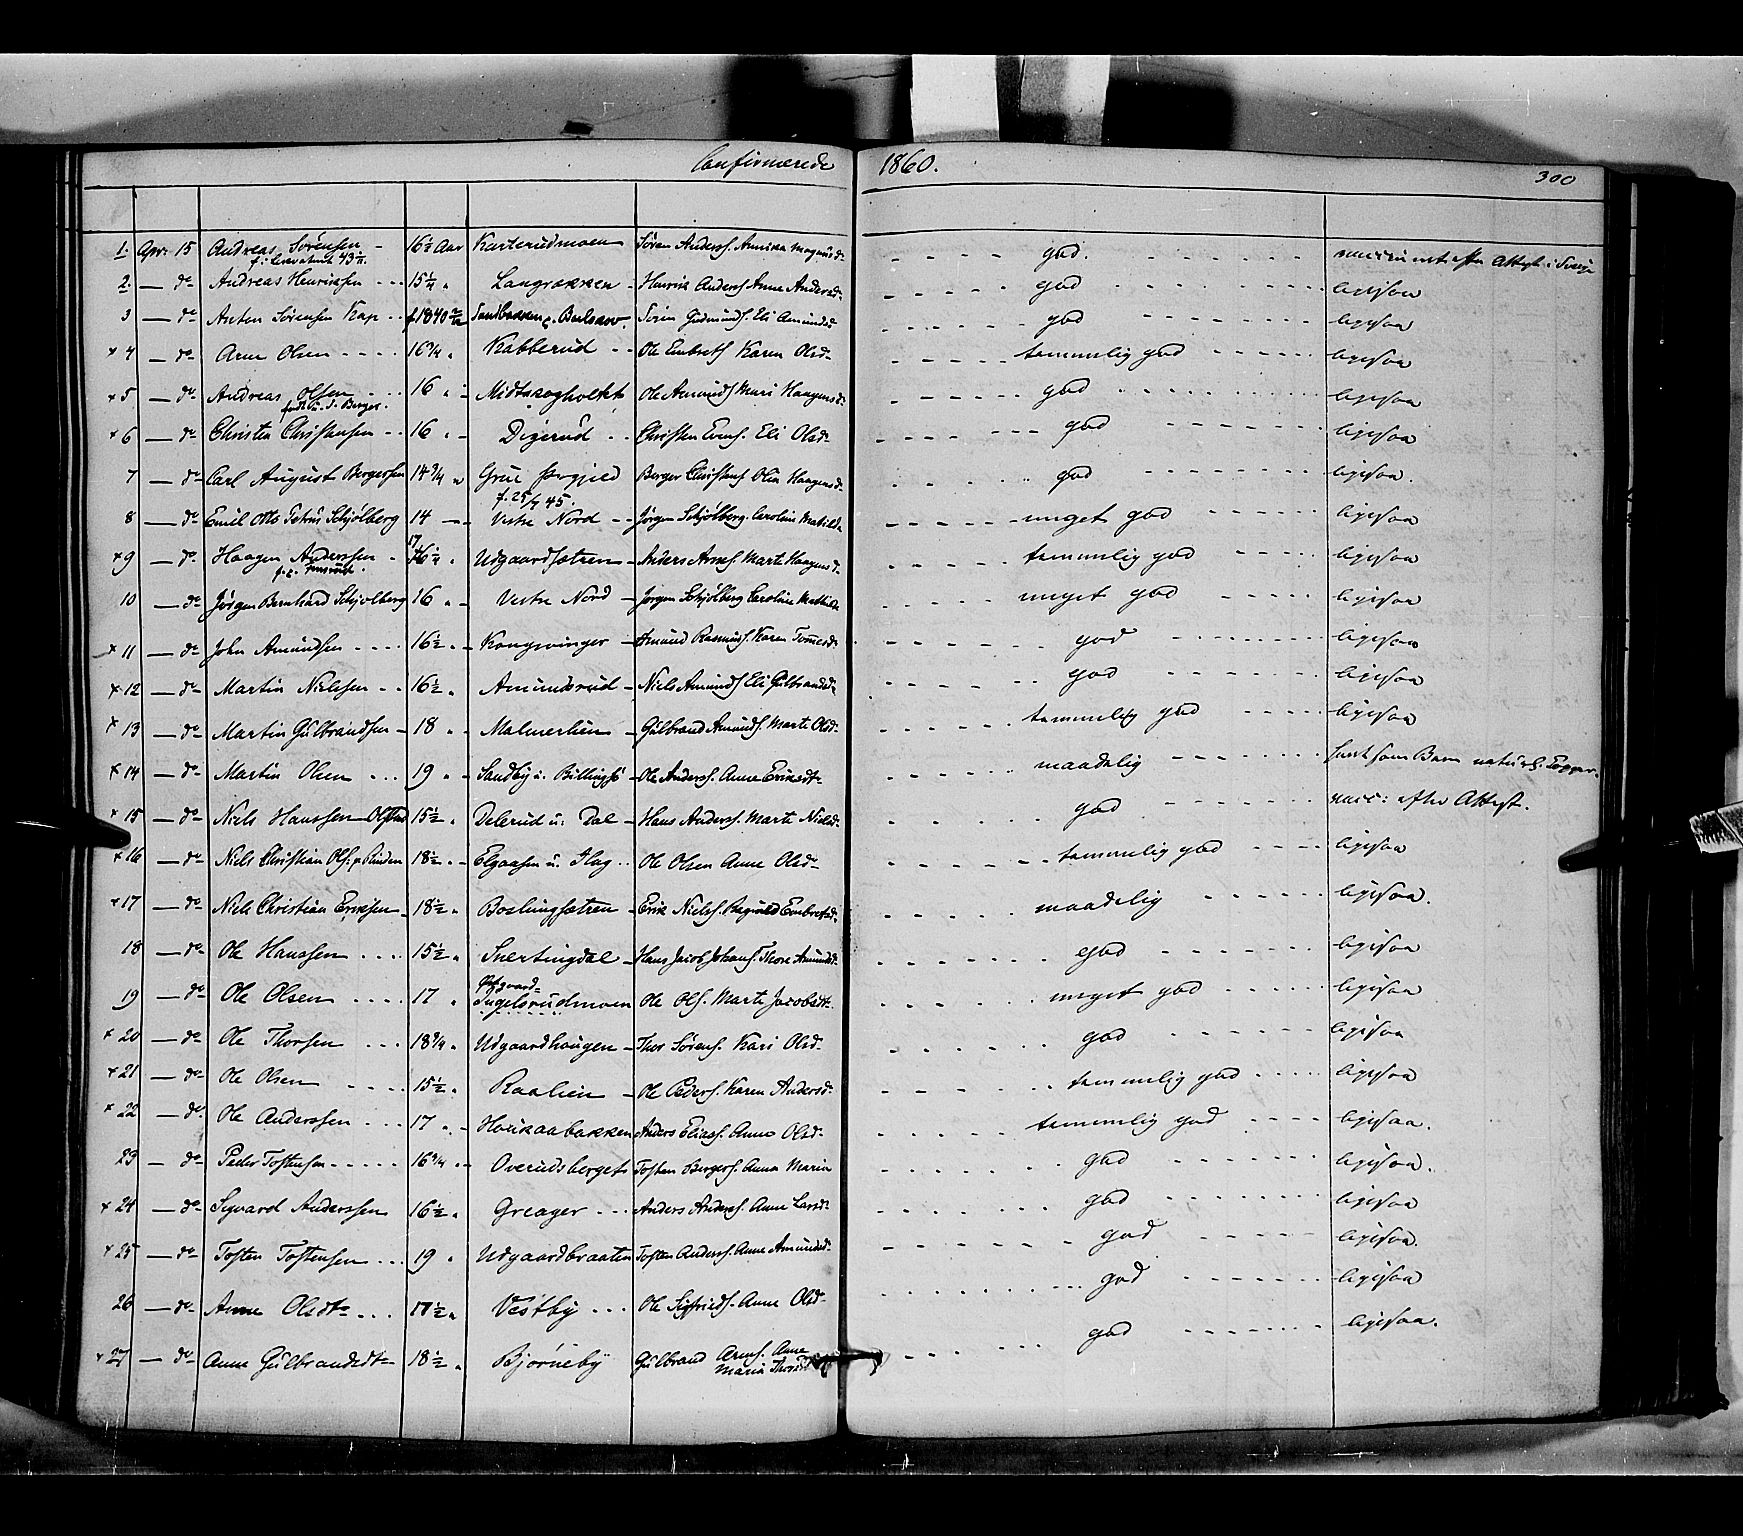 Confirmerede 1860. 300
1. Apr. 15 Andreas Sørensen - 16½ Aar Karterudmoen Søren Anders. Annika Magnusd. god. vaccineret efter Attest i Sverige
2. — do Andreas Henriksen 15¼ " Langrækken - Henrik Anders. Anne Andersd. god ligesaa
3 — do Anten Sørensen Kap f 1840 Sandbakken Gudmunds. Eli Amundsd god ligesaa
x 4 — do Arne Olsen 16¾ " Kabberud Ole Embrets. Karen Olsd. temmelig god ligesaa
x 5 — do Andreas Olsen 16 " Midtskogholtet Ole Amunds. Mari Haagensd. god ligesaa
x 6 — do Christen Christiansen 16 " Digerud Christen Evens. Eli Olsd. god ligesaa
7 — do Carl August Bergersen 14¾ " Grue Præstegjeld Berger Christians. Olia Haagensd. god ligesaa.
f. 25/7 45.
8 — do Emil Otto Petrus Schjølberg 14 — Vestre Nord Jørgen Schjølberg. Caroline Mathilde meget god ligesaa
x 9 — do Haagen Anderssen 17 Udgaardsætren Anders Arnes. Marte Haagensd. temmelig god ligesaa
10 — do Jørgen Bernhard Schjølberg 16 " Vestre Nord Jørgen Schjølberg Caroline Mathilde meget god ligesaa
x 11 — do John Amundsen 16½ " Kongsvinger Amund Rasmus. Karen Tommesd. god ligesaa
x 12 — do Martin Nielsen 16½ " Amundsrud Niels Amunds. Eli Gulbrandsd. god ligesaa
x 13 — do Martin Gulbrandsen 18 " Malmerlien Gulbrand Amunds. Marte Olsd. temmelig god ligesaa
x 14 — do Martin Olsen 19 " Sandby i Billingsj Ole Anders. Anne Eriksdt. maadelig havt som Barn naturl. Kopper.
x 15 — do Niels Hanssen 15½ " Delerud u. Dal Hans Anders. Marte Nielsd. god vacc: efter Attest.
x 16 — do Niels Christian Ols. 18½ " Elgaasen u. Flag Ole Olsen Anne Olsd. temmelig god ligesaa
x 17 — do Niels Christian Eriksen 18½ " Bochingsætren Erik Niels. Ragnild Embretsd. maadelig ligesaa.
18 — do Ole Hanssen 15½ " Snertingdal Hans Jacob Johans. Thore Amundsd. god ligesaa
19 — do Ole Olsen 17 " Ingelsrudmoen Ole Ols. Marte Jacobsdt. meget god ligesaa
x 20 — do Ole Thorsen 18¾ " Udgaardhaugen Thor Sørens. Kari Olsd. god ligesaa
x 21 — do Ole Olsen 15½ " Raalien Ole Peders. Karen Andersd. temmelig god ligesaa
x 22 — do. Ole Anderssen 17 " Houkaabakken Anders Elias. Anne Olsd. temmelig god ligesaa.
23 — do Peder Tostensen 16¾ " Overudsberget Tosten Bergers. Anna Maria god ligesaa.
x 24 — do Sigvard Anderssen 16½ " Greager Anders Anders. Anne Larsd. god ligesaa
x 25 — do Tosten Tostensen 19 " Udgaardbraaten Tosten Anders. Anne Amundsd. god ligesaa.
26 — do Anne Olsdtr 17½ " Vestby Ole Sigfrieds. Anne Olsd. god ligesaa
x 27 — do Anne Gulbrandsdtr 18½ " Bjørneby Gulbrand Arnes. Anne god ligesaa.
Maria Thorsd